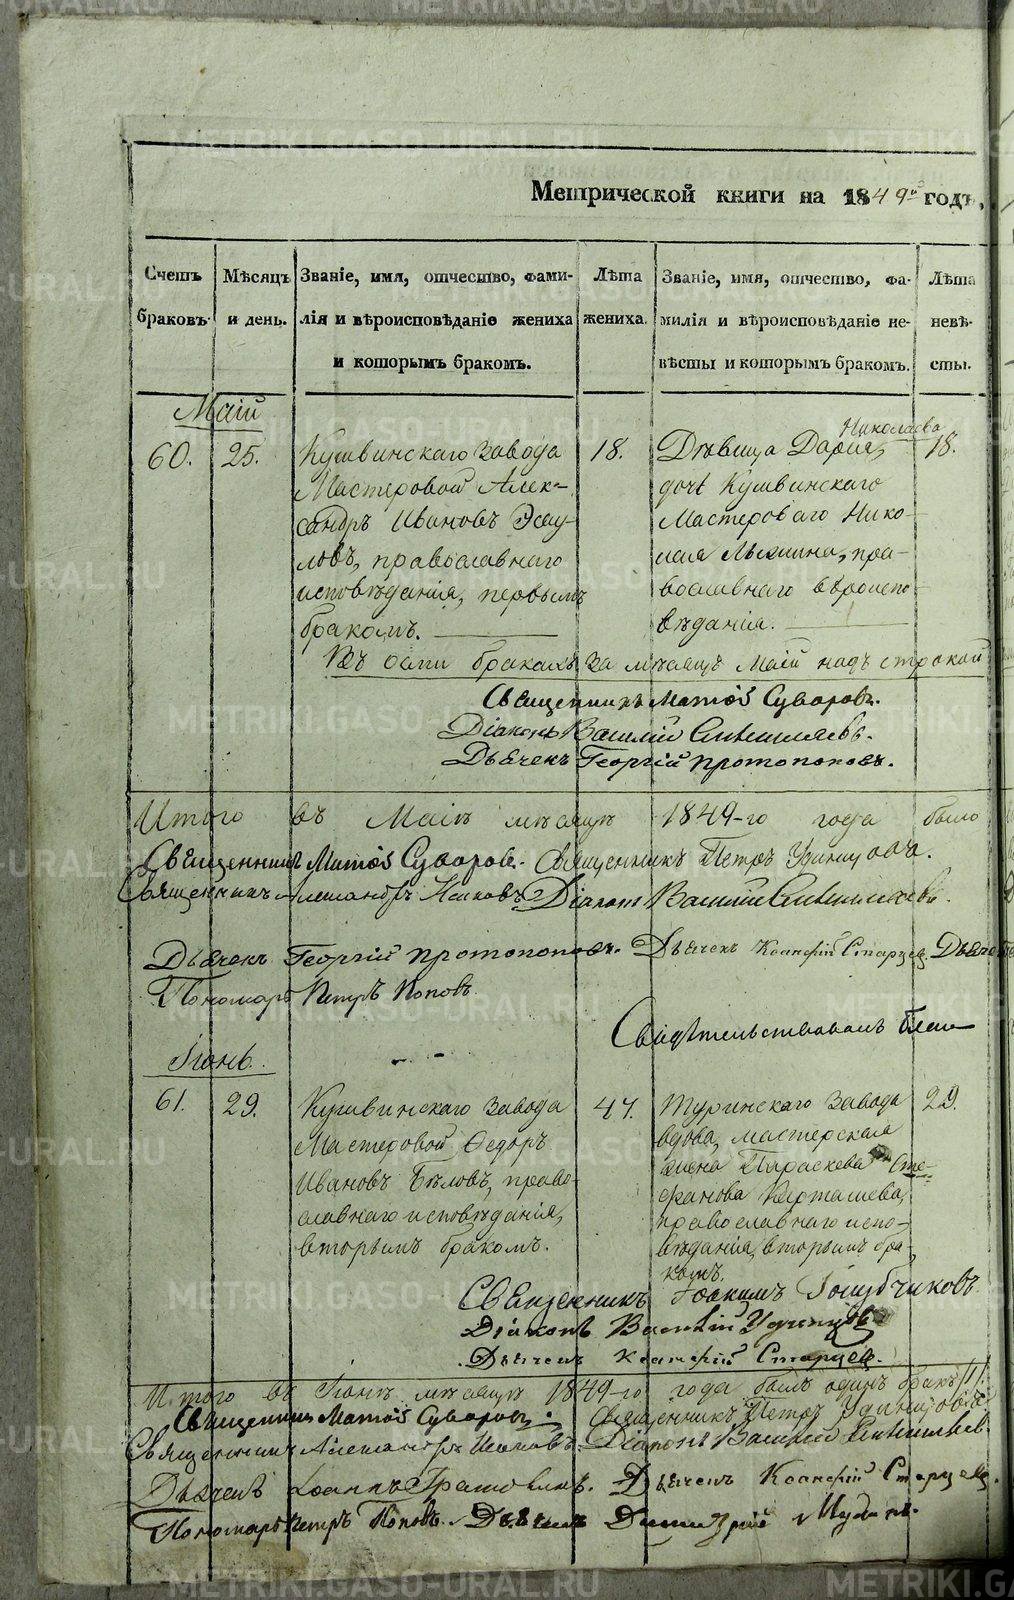 METRIKI.GASO-URAL.RU
Метрической книги на 1849й годъ,
Счетъ браковъ.
Мѣсяцъ и день.
Званіе, имя, отчество, фами-
лія и вѣроисповѣданіе жениха
и которымъ бракомъ.
Лѣта жениха.
Званіе, имя, отчество, фа-
милія и вѣроисповѣданіе не-
вѣсты и которымъ бракомъ.
Лѣта невѣ-
сты.
Маій
60.
25.
Кушвинскаго завода
Мастеровой Алек-
сандръ Ивановъ Эсау-
ловъ, православнаго
исповѣданія, первымъ
бракомъ.
18.
Николаева
Дѣвица Дария,
дочь Кушвинскаго
Мастероваго Нико-
лая, пра-
вославнаго вѣроиспо-
вѣданія.
18.
браках за мѣсяцъ Маій надъ строкой
Священникъ Матѳей Суворовъ.
Діаконъ Василій
Дьячекъ Георгій Протопоповъ.
Итого въ Маіѣ мѣсяцѣ 1849-го года было
Священникъ Матѳей Суворовъ. Священникъ Петръ Удинцовъ.
Священникъ Александръ Діаконъ Василій
Дьячекъ Георгій Протопоповъ. Дьячекъ Ксанфій Старцев. Дьяче
Пономарь Петръ Поповъ
Свидѣтельствовалъ
Іюнь.
61.
29.
Кушвинскаго завода
Мастеровой Ѳедоръ
Ивановъ Бѣловъ, право-
славнаго исповѣданія,
вторымъ бракомъ.
47.
Туринскаго завода
вдова, мастерская
жена Параскева Сте-
фанова Карташева,
православнаго испо-
вѣданія, вторымъ бра-
комъ.
29.
Священникъ Іоакимъ Голубчиковъ
Діаконъ Василій Удинцовъ
Дьячекъ Ксанфій Старцев.
Итого въ Іюнѣ мѣсяцѣ 1849-го года былъ одинъ бракъ /1/.
Священникъ Матѳей Суворовъ. Священникъ Петръ Удинцовъ
Священникъ Александръ Діаконъ Василій
Дьячекъ Іоаннъ. Дьячекъ Ксанфій Старцев.
Пономарь Петръ Поповъ. Дьячекъ Димитрій